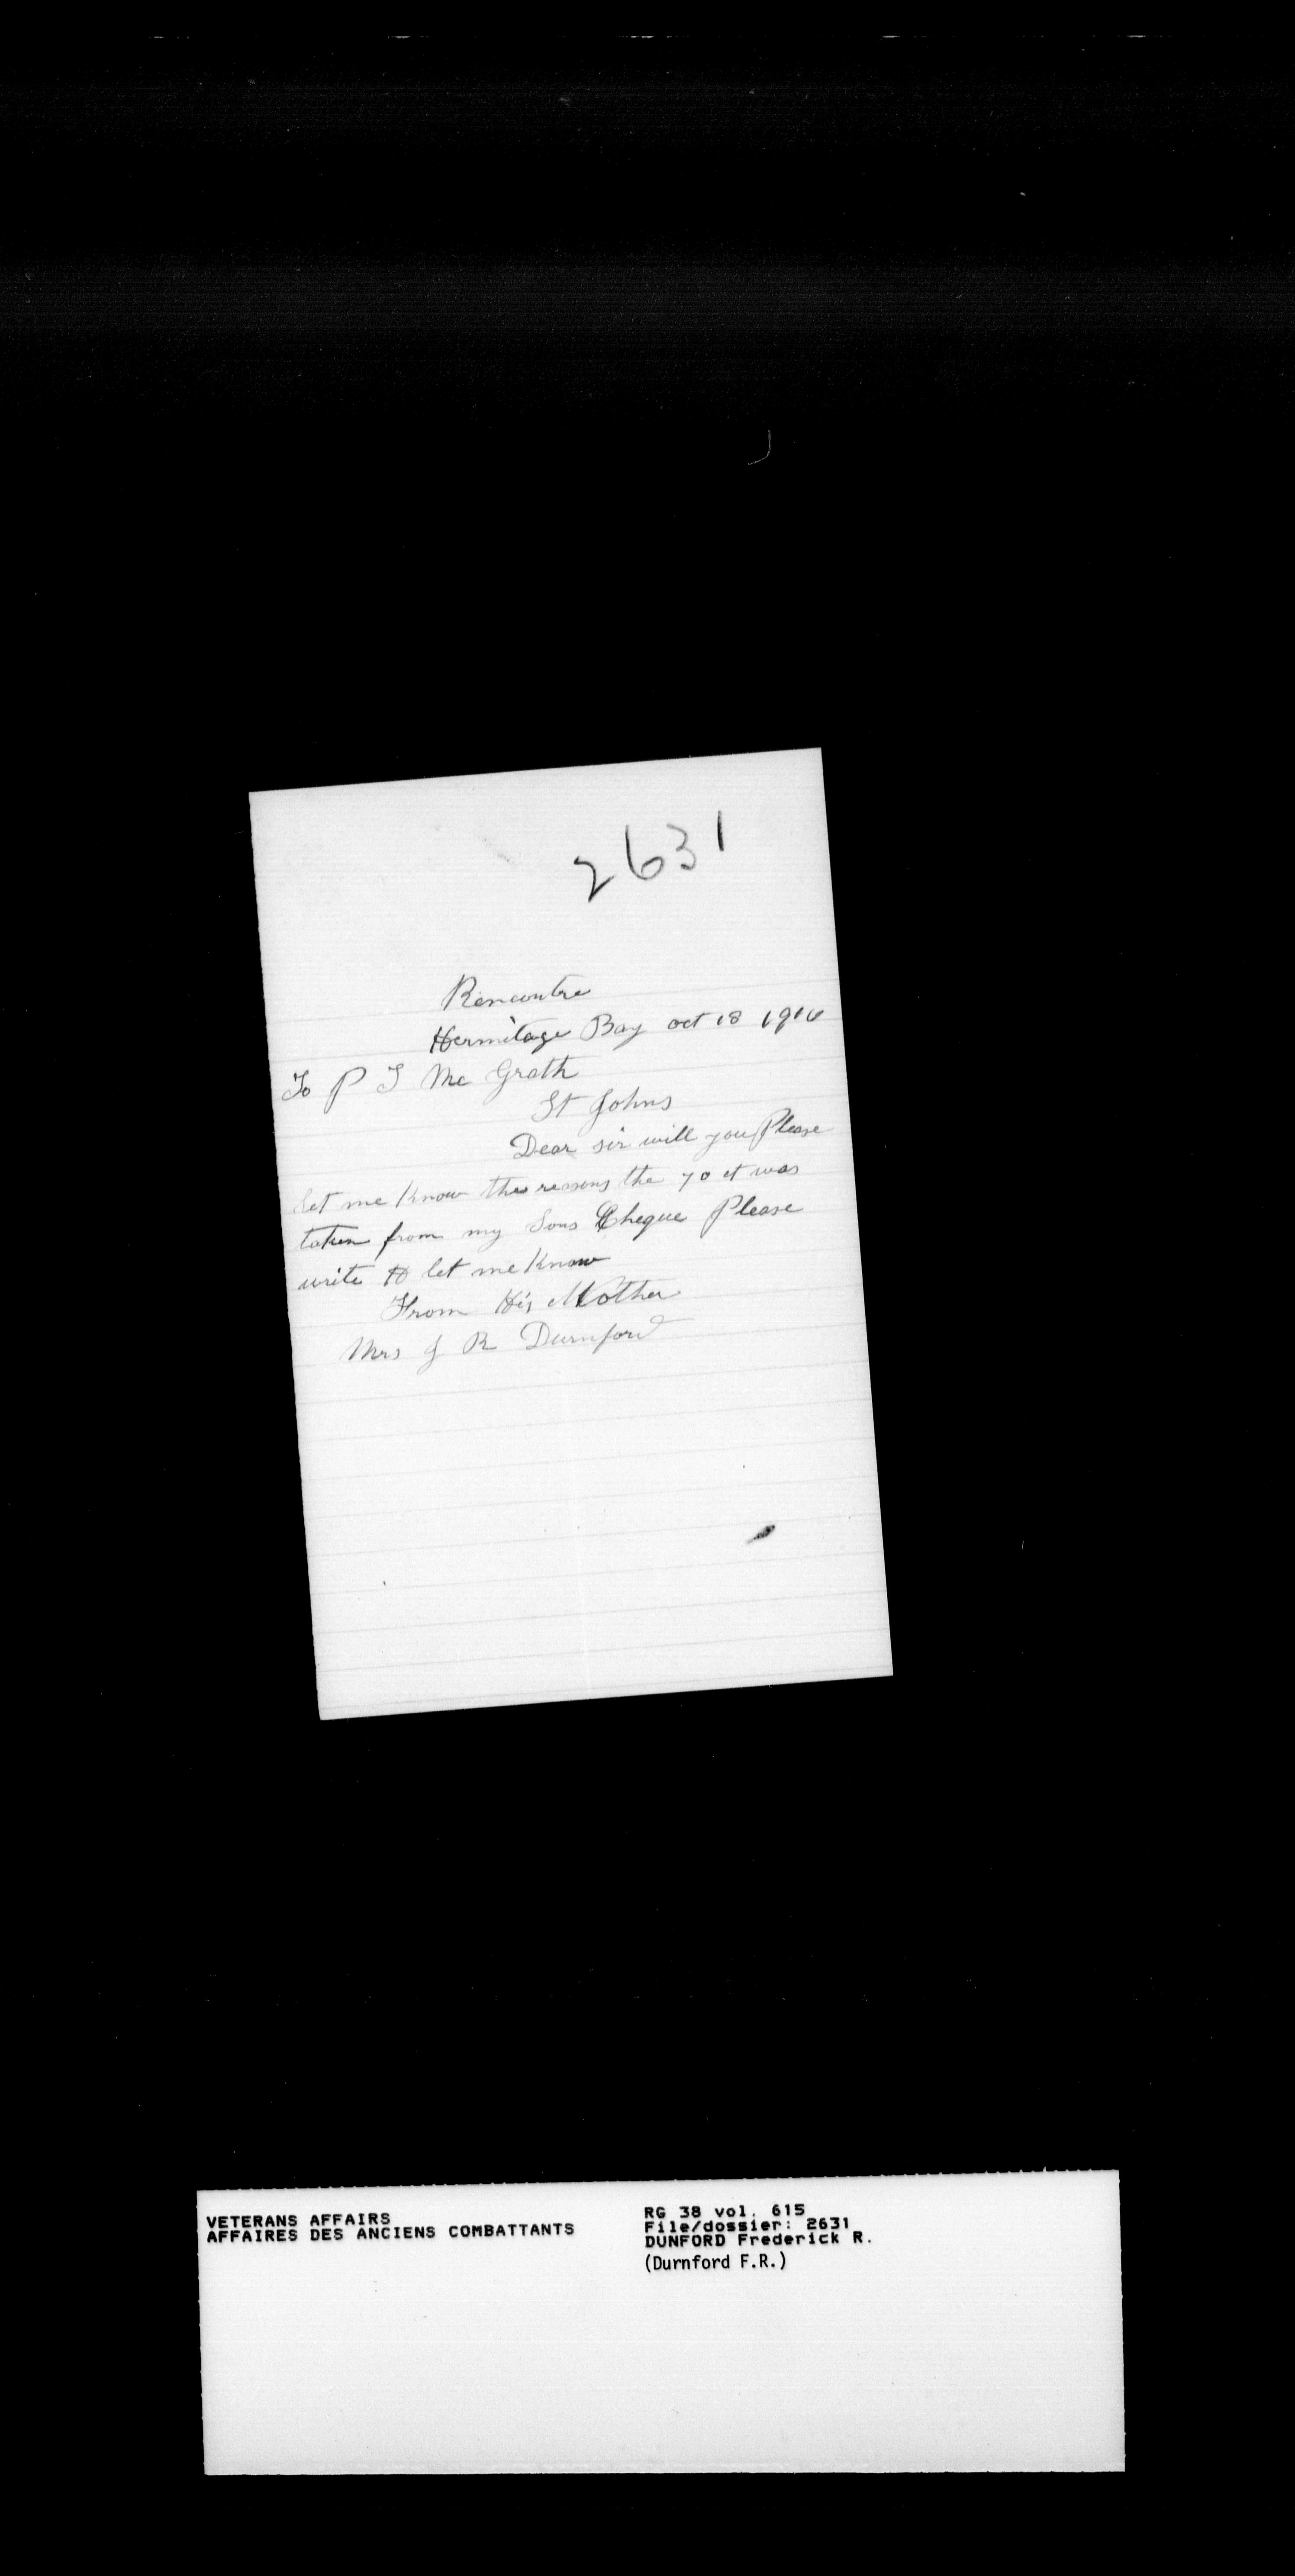 2631
Rencontre
Hermitage Bay oct 18 1916
To P T Mc Grath
St Johns
Dear sir will you Please
let me Know the reasons the 70 ct was
taken from my Sons Cheque Please
write & let me Know
From His Mother
Mrs J R Durnford
VETERANS AFFAIRS
AFFAIRES DES ANCIENS COMBATTANTS
RG 38 vol. 615
File/dossier: 2631
DUNFORD Frederick R.
(Durnford F.R.)